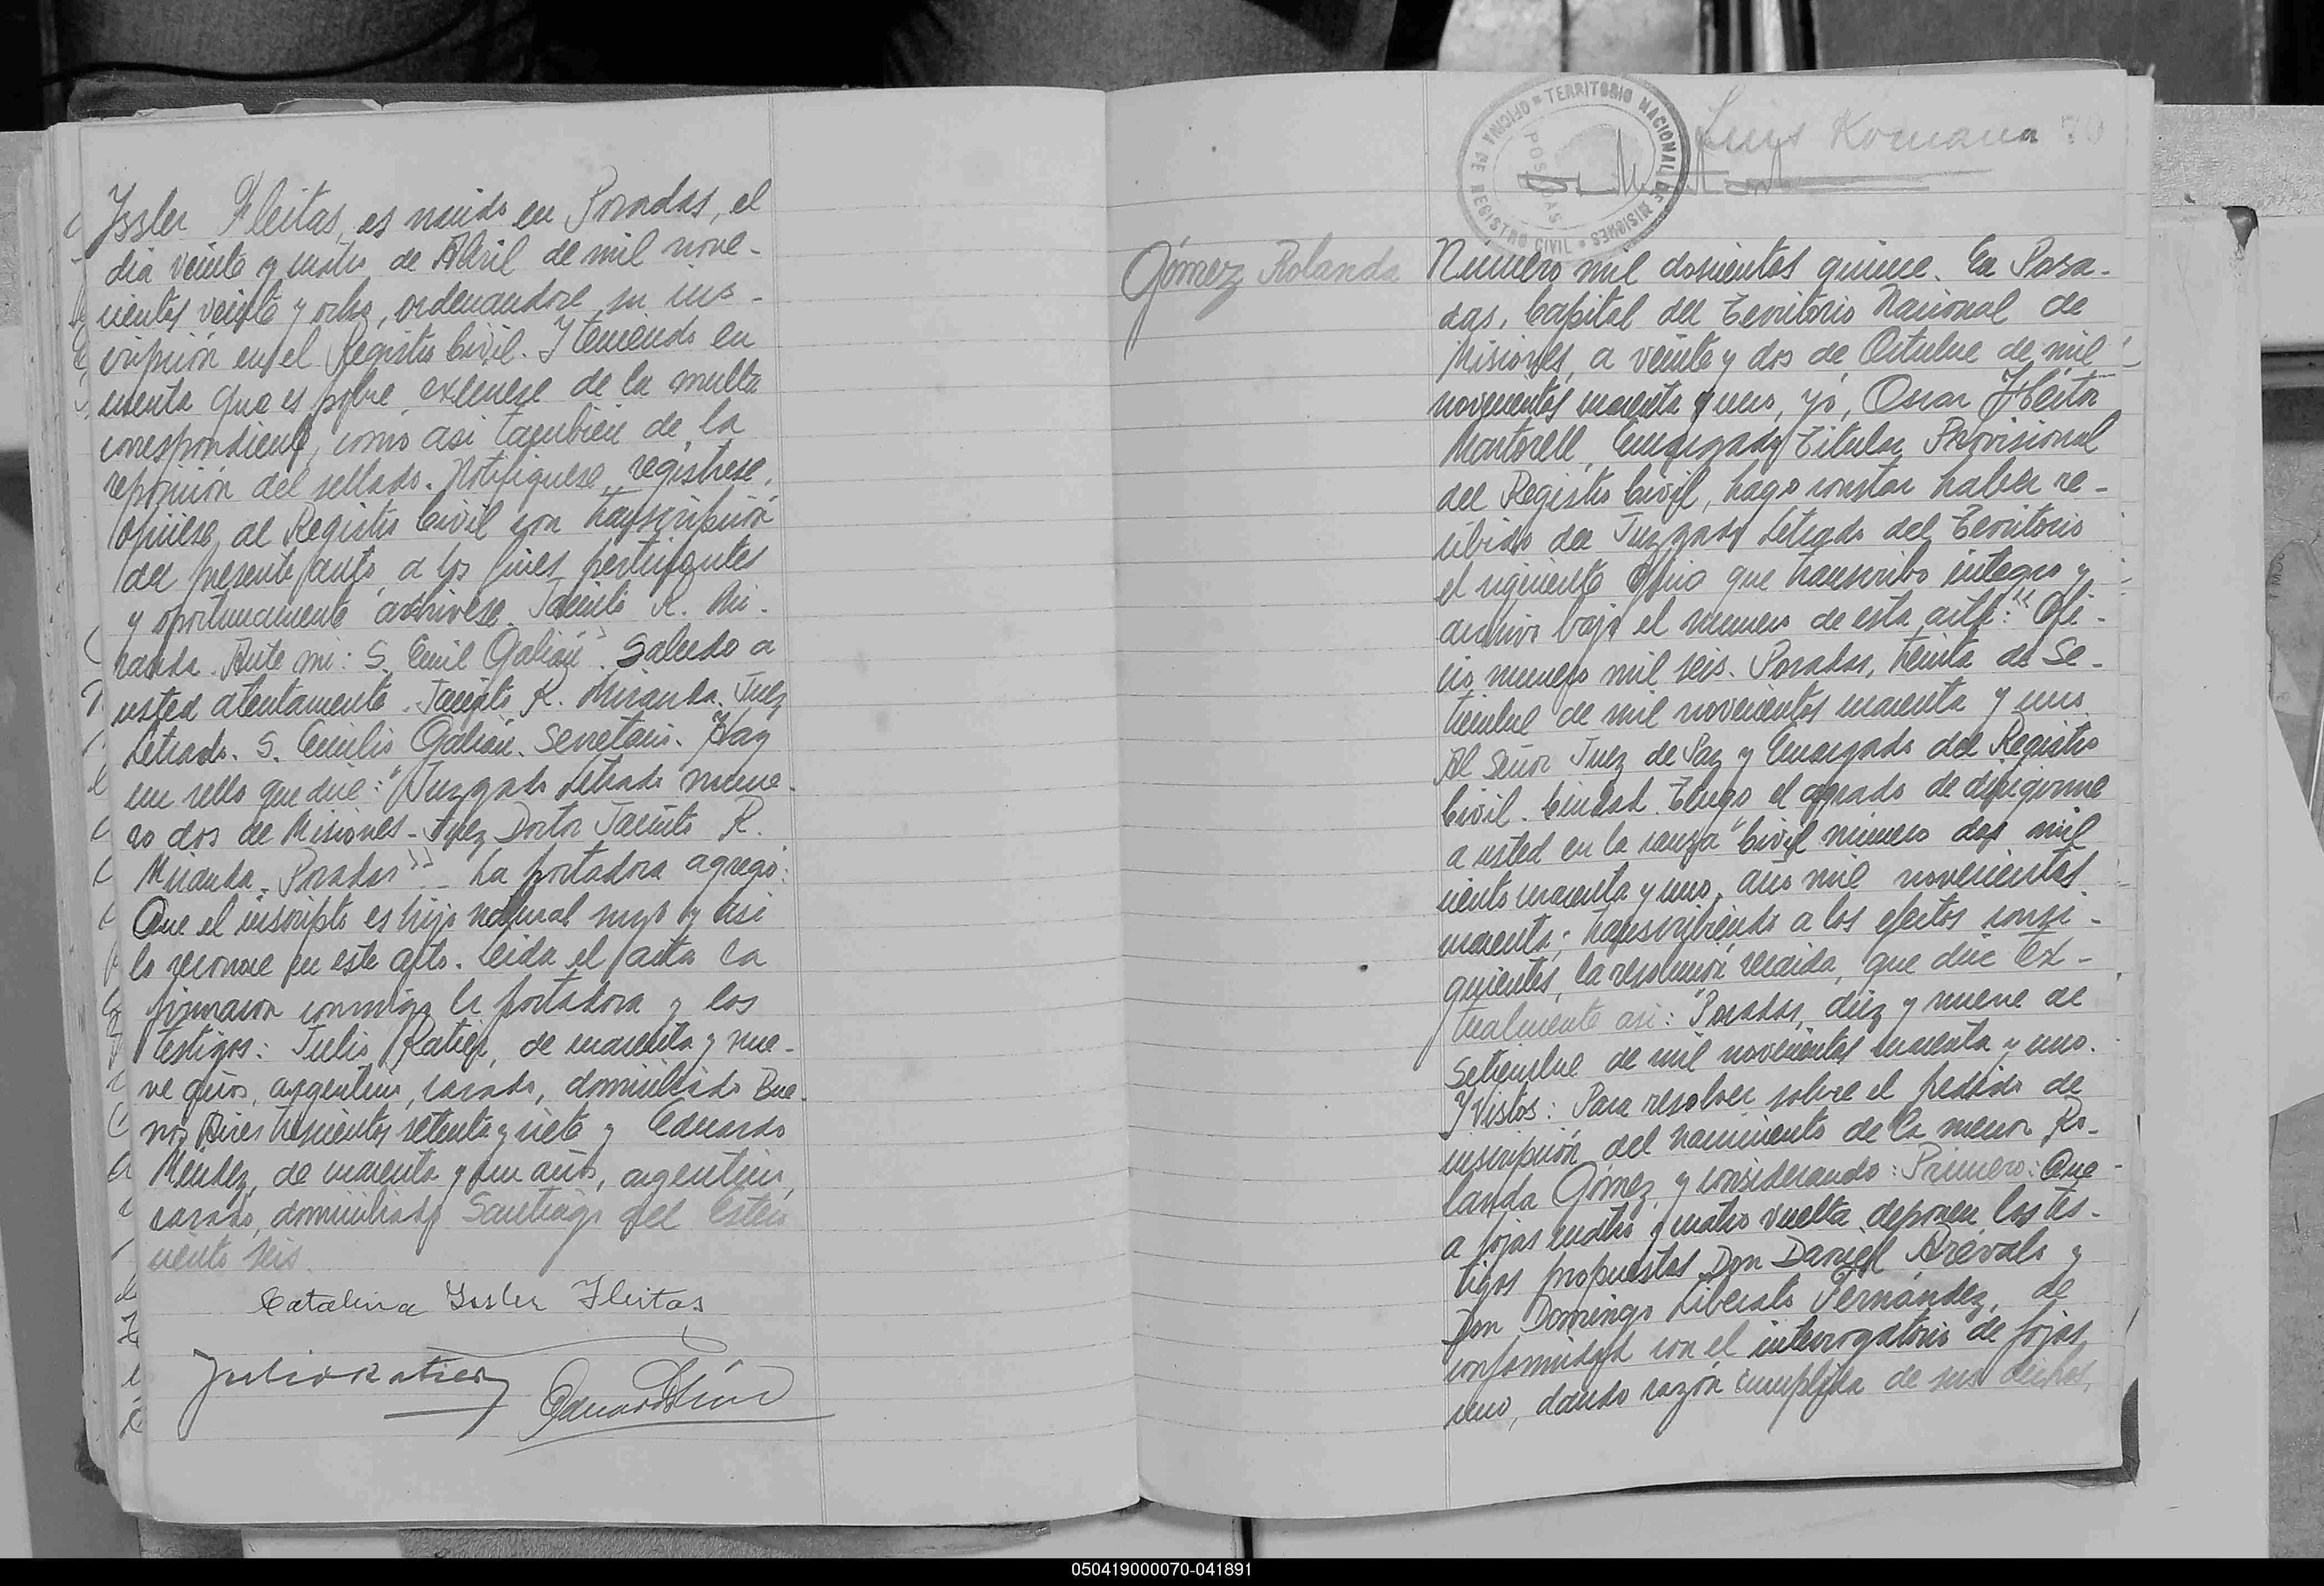 Issler Fleitas, es nacido en Posadas, el
dia veinte y cuatro de Abril de mil nove-
cientos veinte y ocho, ordenandose su ins-
cripción en el Registro Civil. Y teniendo en
cuenta que es pobre exímese de la multa
correspondiente, como asi tambien de la
reposición del sellado. Notifiquese, registrese,
ofíciese al Registro Civil con transcripción
del presente auto a los fines pertinentes
y oportunamente archivese. Jacinto R. Mi-
randa. Ante mi: S. Emil Galian". Saludo a
usted atentamente. Jacinto R. Miranda. Juez
Letrado. S. Emilio Galian. Secretario. Hay
un sello que dice: "Juzgado Letrado nume-
ro dos de Misiones - Juez Doctor Jacinto R.
Miranda. Posadas" - La portadora agregó:
Que el inscripto es hijo natural suyo y asi
lo reconoce en este acto. Leida el acta la
firmaron conmigo la portadora y los
testigos: Julio Ratier, de cuarenta y nue-
ve años, argentino, casado, domiciliado Bue-
nos Aires trescientos setenta y siete y Eduardo
Méndez, de cuarenta y un años, argentino,
casado, domiciliado Santiago del Estero
ciento seis.
Catalina Issler Fleitas
Julio Ratier
TERRITORIO NACIONAL DE MISIONES
OFICINA DE REGISTRO CIVIL
POSADAS
Luis Romana 70
Gómez Rolanda
Número mil doscientos quince. En Posa-
das, Capital del Territorio Nacional de
Misiones, a veinte y dos de Octubre de mil
novecientos cuarenta y uno, yo, Oscar Héctor
Martorell, Encargado Titular Provisional
del Registro Civil, hago constar haber re-
cibido del Juzgado Letrado del Territorio
el siguiente oficio que transcribo integro y
archivo bajo el numero de esta acta: "Ofi-
cio numero mil seis. Posadas, treinta de Se-
tiembre de mil novecientos cuarenta y uno
Al Señor Juez de Paz y Encargado del Registro
Civil. Ciudad. Tengo el agrado de dirigirme
a usted en la causa "Civil número dos mil
ciento cuarenta y uno, año mil novecientos
cuarenta; transcribiendo a los efectos consi-
guientes, la resolución recaida, que dice tex-
tualmente asi: "Posadas, diez y nueve de
Setiembre de mil novecientos cuarenta y uno.
Y Vistos: Para resolver sobre el pedido de
inscripción del nacimiento de la menor Ro-
landa Gómez, y considerando: Primero: Que
a fojas cuatro y cuatro vuelta deponen los tes-
tigos propuestos Don Daniel Arévalo y
Don Domingo Liberato Fernández, de
conformidad con el interrogatorio de fojas
uno, dando razón cumplida de sus dichos,
050419000070-041891